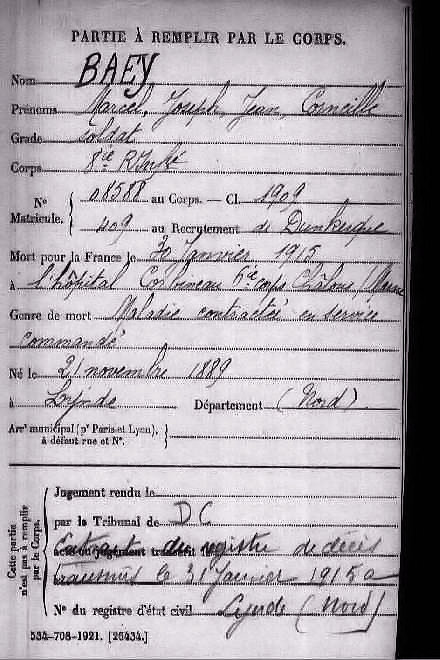 PARTIE À REMPLIR PAR LE CORPS.
Nom BAEY
Prénoms Marcel, Joseph, Jean, Corneille
Grade soldat
Corps 8ie R Infie
N° Matricule. { 08588 au Corps. — Cl. 1909
409 au Recrutement de Dunkerque
Mort pour la France le 30 Janvier 1915
à l'hôpital Corbineau 6ie corps Châlons (Marne
Genre de mort Maladie contractée en service
commandé
Né le 21 novembre 1889
à Lynde Département (Nord)
Arrt municipal (pr Paris et Lyon), à défaut rue et N°. }
Cette partie n'est pas à remplir par le Corps.
Jugement rendu le
par le Tribunal de D C
acte ou jugement transcrit le Extrait du registre de décès
transmis le 31 Janvier 1915 a
N° du registre d'état civil Lynde (Nord)
534-708-1921. [26434.]